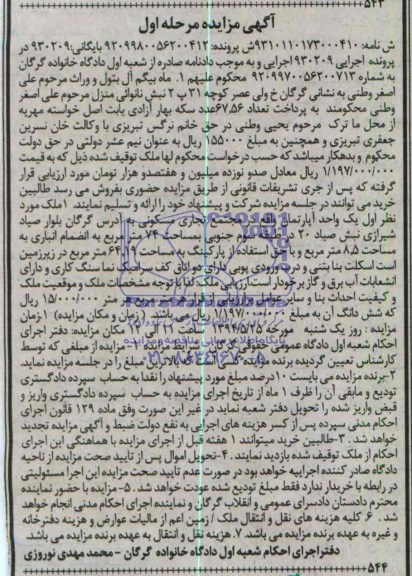 ۵۴۳
آگهی مزایده مرحله اول
ش نامه: ۹۳۱۰۱۱۰۱۷۳۰۰۰۴۱۰ش پرونده: ۹۲۰۹۹۸۰۰۵۶۲۰۰۴۱۲ بایگانی:۹۳۰۲۰۹ در
پرونده اجرایی ۹۳۰۲۰۹ اجرایی و به موجب دادنامه صادره از شعبه اول دادگاه خانواده گرگان
به شماره ۹۲۰۹۹۷۰۰۵۶۲۰۰۷۱۳ محکوم علیهم ۱. ماه بیگم آل بتول و وراث مرحوم علی
اصغر وطنی به نشانی گرگان خ ولی عصر کوچه ۳۱ پ ۲ نبش نانوائی منزل مرحوم علی اصغر
وطنی محکومند به پرداخت تعداد ۶۷.۵۶عدد سکه بهار آزادی بابت اصل خواسته مهریه
از محل ما ترک مرحوم یحیی وطنی در حق خانم نرگس تبریزی با وکالت خان نسرین
جعفری تبریزی و همچنین به مبلغ ۱۵۵۰۰۰ ریال به عنوان نیم عشر دولتی در حق دولت
محکوم و بدهکار میباشد که حسب درخواست محکوم لها ملک توقیف شده ذیل که به قیمت
۱/۱۹۷/۰۰۰/۰۰۰ ریال معادل صدو نوزده میلیون و هفتصدو هزار تومان مورد ارزیابی قرار
گرفته که پس از جری تشریفات قانونی از طریق مزایده حضوری بفروش می رسد طالبین
خرید می توانند در جلسه مزایده شرکت و پیشنهاد خود را ارائه و تسلیم نمایند. ۱ملک مورد
نظر اول یک واحد آپارتمان واقع در مجتمع تجاری مسکونی به آدرس گرگان بلوار صیاد
شیرازی نبش صیاد ۲۰ در طبقه سوم جنوبی بمساحت ۷۴ متر مربع به انضمام انباری به
مساحت ۸.۵ متر مربع و با حق استفاده از پارکینگ به مساحت متر مربع در زیرزمین
است اسکلت بنا بتنی و درب ورودی پوبی دارای دو اتاق کف سرامیک نما سنگ کاری و دارای
انشعابات آب برق و گاز برخوردار است ارزیابی ملک لذا با توجه مشخصات ملک و موقعیت ملک
و کیفیت احداث بنا و سایر عوامل و ارزیابی از قرار هر متر مربع هر متر ۱۵/۰۰۰/۰۰۰ ریال
که شش دانگ آن به مبلغ ۱/۱۹۷/۰۰۰/۰۰۰ ریال می باشد. (زمان و مکان مزایده) ۱.زمان
مزایده : روز یک شنبه مورخه ۱۳۹۴/۵/۲۵ ساعت ۱۱ تا ۱۲ مکان مزایده: دفتر اجرای
احکام شعبه اول دادگاه عمومی حقوقی گرگان. شرایط مزایده ۱-مزایده از مبلغی که توسط
کارشناس تعیین گردیده برنده مزایده کسی است که بالاترین مبلغ را در جلسه مزایده نماید
۲-برنده مزایده می بایست ۱۰درصد مبلغ مورد پیشنهاد را نقدا به حساب سپرده دادگستری
تودیع و مابقی آن را ظرف ۱ ماه از تاریخ اجرای مزایده به حساب سپرده دادگستری واریز و
قبض واریز شده را تحویل دفتر شعبه نماید در غیر این صورت وفق ماده ۱۲۹ قانون اجرای
احکام مدنی سپرده پس از کسر هزینه های اجرایی به نفع دولت ضبط و آگهی مزایده تجدید
خواهد شد . ۳-طالبین خرید میتوانند ۱ هفته قبل از اجرای مزایده با هماهنگی این اجرای
احکام از ملک توقیف شده بازدید نمایند. ۴-تحویل اموال پس از تایید صحت مزایده از ناحیه
دادگاه صادر کننده اجراییه خواهد بود در صورت عدم تایید صحت مزایده این اجرا مسئولیتی
در رابطه با خریدار ندارد فقط مبلغ تودیع شده عودت خواهد شد. ۵-مزایده با حضور نماینده
محترم دادستان دادسرای عمومی و انقلاب گرگان و نماینده اجرای احکام مدنی انجام خواهد
شد. ۶. کلیه هزینه های نقل و انتقال ملک / زمین اعم از مالیات عوارض و هزینه دفترخانه
و غیره به عهده برنده مزایده می باشد. ۷. هزینه نقل و انتقال به عهده برنده مزایده می باشد.
دفتر اجرای احکام شعبه اول دادگاه خانواده گرگان - محمد مهدی نوروزی
۵۴۴